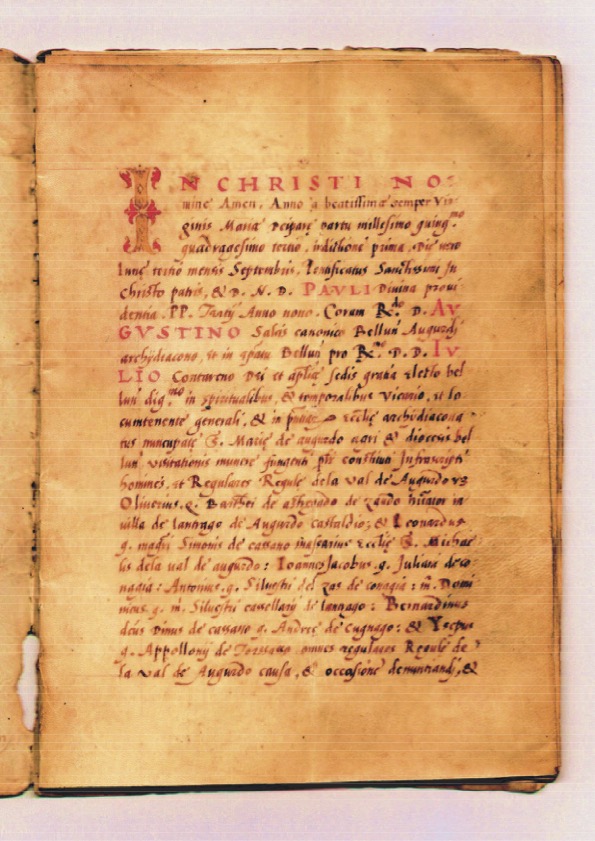 IN CHRISTI NO:
mine Amen, Anno a beatissimæ semper Vir
ginis Mariæ Deiparę partu millesimo quing.mo
quadragesimo tertio, inditione prima, Die vero
Lunę tertio mensis Septembris, Pontificatus Sanctissimi In
christo patris, & D. N. D. PAULI Divina provi
dentia .PP. Tertij Anno nono. Coram R.do D. AV
GVSTINO Salcis canonico Bellun̄ Augurdj
archydiacono, et in Bellun̄ pro R.mo D. D. IV
LIO Contareno Dei et aplicę sedis gratia electo bel
lun̄ dig.mo in spiritualibus, & temporalibus Vicario, et lo
cumtenente generali, & in Ecclię archydiacona
tus nuncupatę S. Marię de augurdo agri & diocesis bel
lun̄ visitationis munere fungenti constituti Infrascripti
homines, et Regulares Regulę de la val de Augurdo vz
Oliverius q. Barthei de de in
villa de Iannago de Augurdo castaldio; & Leonardus
q. magri Simonis de cassano massarius ecclię S. Michae
lis dela val de augurdo: Ioannes Jacobus q. Juliani de co
nagia: Antonius q. Silvestri del zas de conagia: m̄. Domi
nicus q. m̄. Silvestri cassellarij de Iannago: Bernardinus
dc̄us Dinus de cassano q. Andreę de Cugnago: & Ysepus
q. Appollonij de Torsasso omnes regulares Regulę de
la val de Augurdo causa, & occasione denuntiandj, &